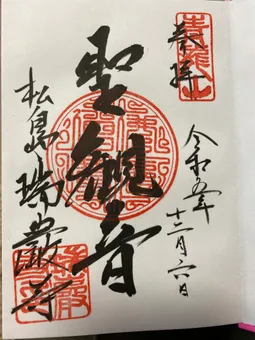 奉拝
令和五年
十二月六日
聖観音
松島瑞巌寺